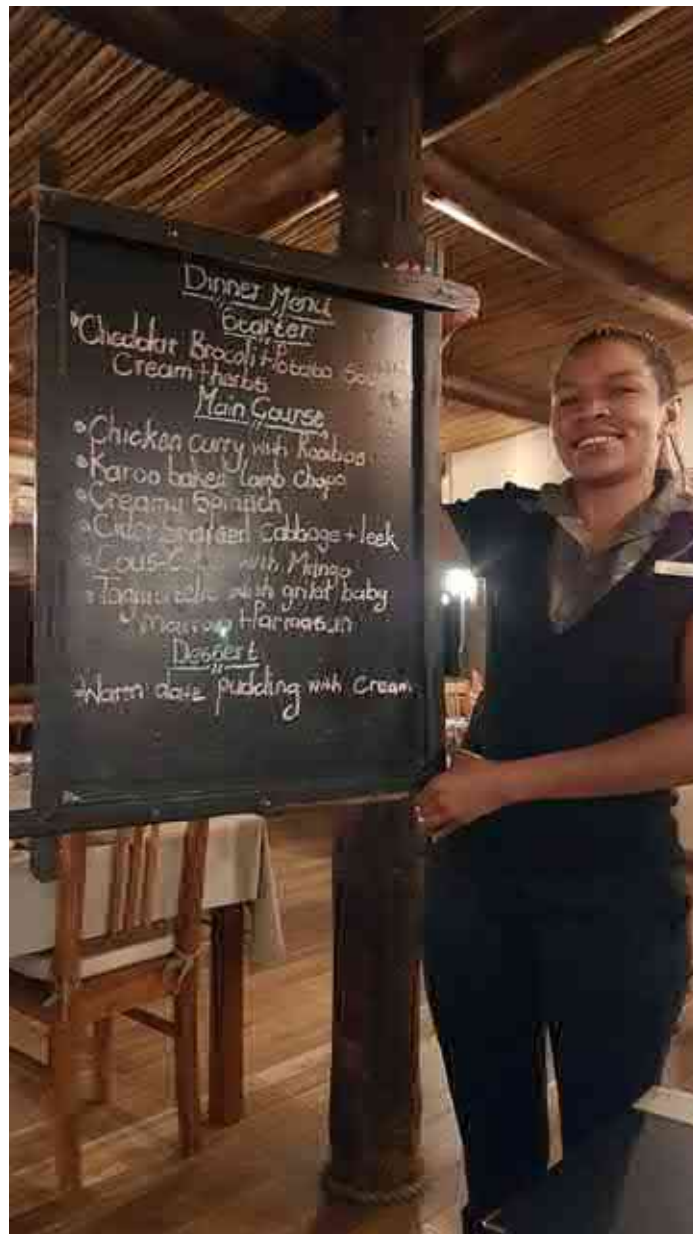 Dinner Menu
Starter
Cheddar Brocoli + Potato
Cream + herbs
Main Course
Chicken curry with Rooibos
Karoo baked lamb chops
Creamy Spinach
Cider braised cabbage + leek
Cous-Cous with Mango
with baby
Marrow + Parmasan
Dessert
Warm date pudding with Cream